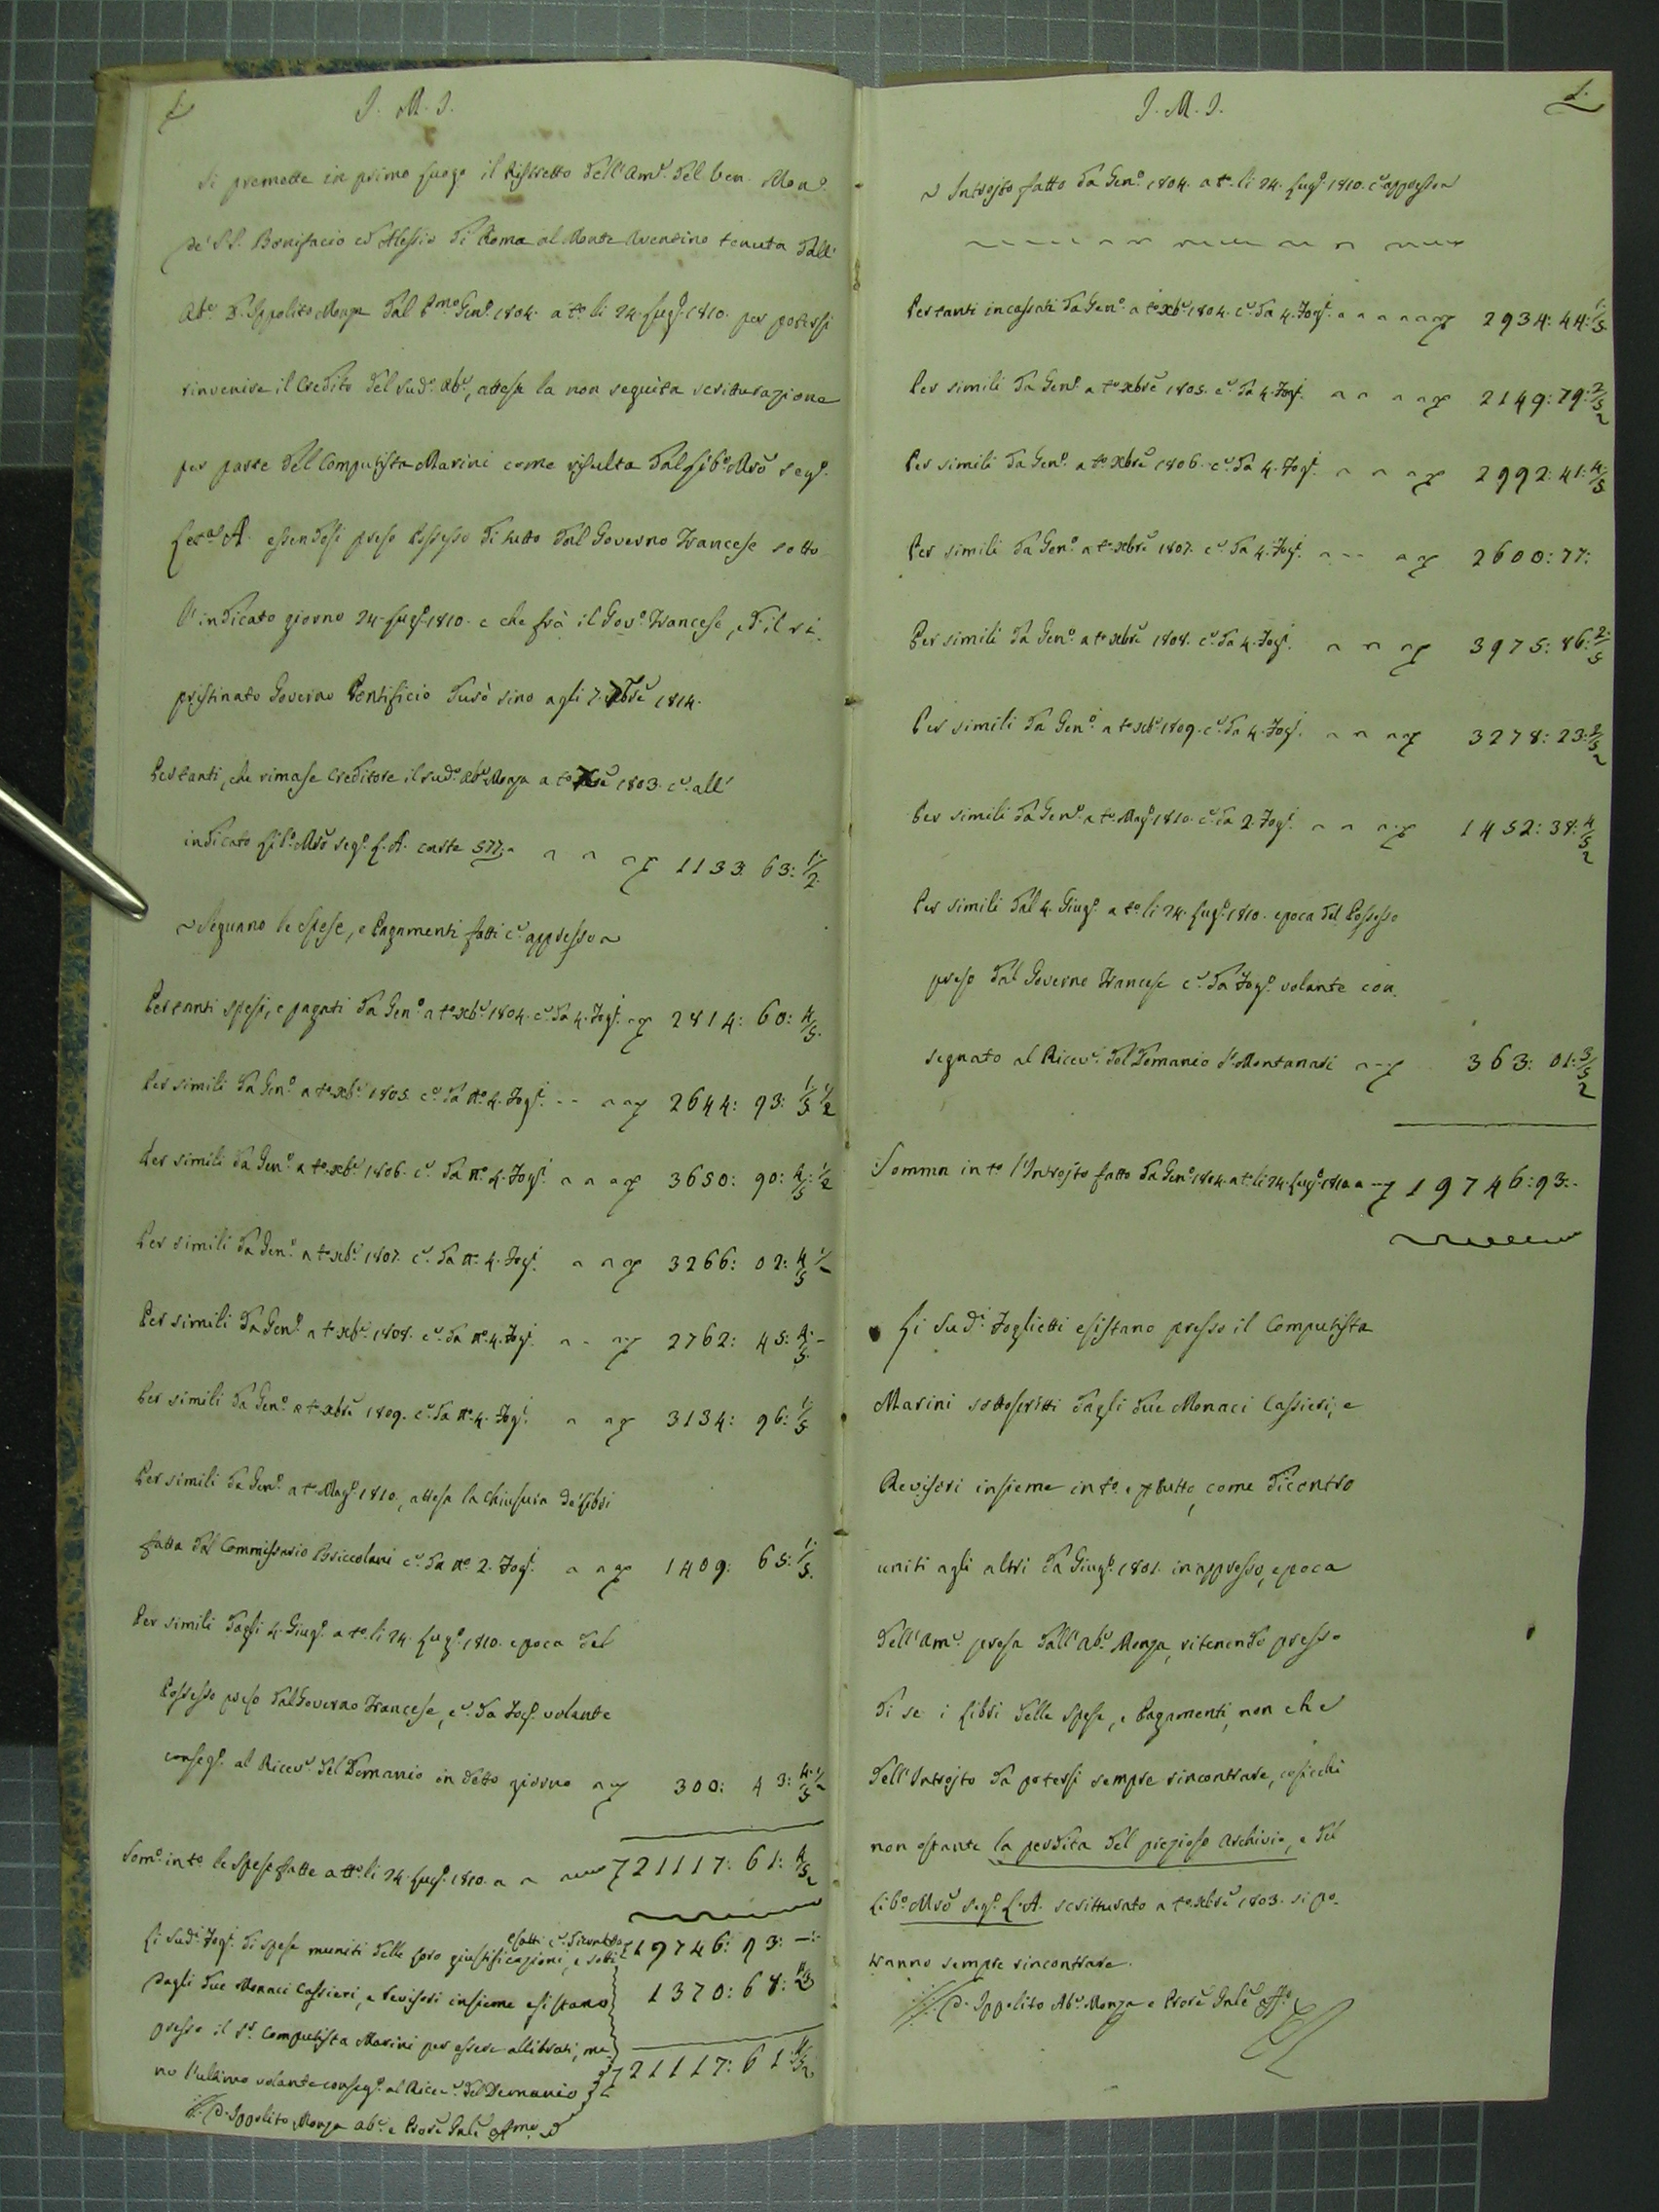 1.
J. M. J.
Si premette in primo luogo il Ristretto dell'Am.e del Ven. Mon.o
de' SS. Bonifacio ed Alessio di Roma al Monte Aventino tenuta dall'
Ab.e D. Ippolito Monza dal P.mo Gen.o 1804. a t.o li 24. Lug.o 1810. per potersi
rinvenire il Credito del sud.o Ab.e, attesa la non seguita scritturazione
per parte del Computista Marini come risulta dal Lib.o Mrõ seg.o
Let.a A. essendosi preso Possesso di tutto dal Governo Francese sotto
l'indicato giorno 24. Lug.o 1810. e che frà il Gov.o Francese, ed il ri-
pristinato Governo Pontificio durò sino agli 7. Xbre 1814.
Per tanti, che rimase Creditore il sud.o Ab.e Monza a t.o Xbre 1803. c.e all'
indicato Lib.o Mrõ seg.o L.A. carte 577. 1133 63: 1/2
Seguono le Spese, e Pagamenti fatti c.e appresso
Per tanti spesi, e pagati da Gen.o a t.o Xb.e 1804. c.e da 4. Fog.i 2814: 60: 4/5
Per simili da Gen.o a t.o Xb.e 1805. c.e da n.o 4. Fog.i 2644: 93: 1/5 1/2
Per simili da Gen.o a t.o Xb.e 1806. c.e da n.o 4. Fog.i 3650: 90: 4/5 1/2
Per simili da Gen.o a t.o Xb.e 1807. c.e da n.o 4. Fog.i 3266: 02: 4/5 1/2
Per simili da Gen.o a t.o Xb.e 1808. c.e da n.o 4. Fog.i 2762: 45: 4/5 -
Per simili da Gen.o a t.o Xbre 1809. c.e da n.o 4. Fog.i 3134: 96: 1/5
Per simili da Gen.o a t.o Mag.o 1810., attesa la Chiusura de' Libri
fatta dal Commissario Briccolani c.e da n.o 2. Fog.i 1409: 65: 1/5
Per simili dagli 4. Giug.o a t.o li 24. Lug.o 1810. epoca del
Possesso preso dal Governo Francese, c.e da Fog.o volante
conseg.o al Ricev.e del Demanio in detto giorno 300: 43: 4/5 1/2
Som.o in t.o le Spese fatte a tt.o li 24. Lug.o 1810. 21117: 61: 4/5
Li sud.i Fog.i di spese muniti delle loro giustificazioni, e sotti
dagli due Monaci Cassieri, e Revisori insieme esistano
presso il S.r Computista Marini per essere allibrati, me-
no l'ultimo volante conseg.o al Ricev.e del Demanio
19746: 93: -:
1370: 68:
21117: 61:
D. Ippolito Monza Ab.e e Prore Gnle
1.
J. M. J.
Introjto fatto da Gen.o 1804. a t.o li 24. Lug.o 1810. c.e appresso
Per tanti incassati da Gen.o a t.o Xb.e 1804. c.e da 4. Fog.i 2934: 44: 1/5
Per simili da Gen.o a t.o Xbre 1805. c.e da 4. Fog.i 2149: 79: 2/5
Per simili da Gen.o a t.o Xbre 1806. c.e da 4. Fog.i 2992: 41: 4/5
Per simili da Gen.o a t.o Xbre 1807. c.e da 4. Fog.i 2600: 77:
Per simili da Gen.o a t.o Xbre 1808. c.e da 4. Fog.i 3975: 86: 2/5
Per simili da Gen.o a t.o Xb.e 1809. c.e da 4. Fog.i 3278: 23: 2/5
Per simili da Gen.o a t.o Mag.o 1810. c.e da 2. Fog.i 1452: 38: 4/5
Per simili dal 4. Giug.o a t.o li 24. Lug.o 1810. epoca del Possesso
preso dal Governo Francese c.e da Fog.o volante con-
segnato al Ricev.e del Demanio S.r Montanari 363: 01: 3/5
Somma in t.o l'Introjto fatto da Gen.o 1804. a t.o li 24. Lug.o 1810. 19746: 93:
Li sud.i Foglietti esistano presso il Computista
Marini sottoscritti dagli due Monaci Cassieri, e
Revisori insieme in t.o, e p tutto, come dicontro
uniti agli altri da Giug.o 1801. in appresso, epoca
dell'Am.e presa dall'Ab.e Monza, ritenendo presso
di se i Libri delle Spese, e Pagamenti, non che
dell'Introjto da potersi sempre rincontrare, cosicchè
non ostante la perdita del prezioso Archivio, e del
Lib.o Mrõ seg.o L.A. scritturato a t.o Xbre 1803. si po-
tranno sempre rincontrare.
D. Ippolito Ab.e Monza e Prore Gnle